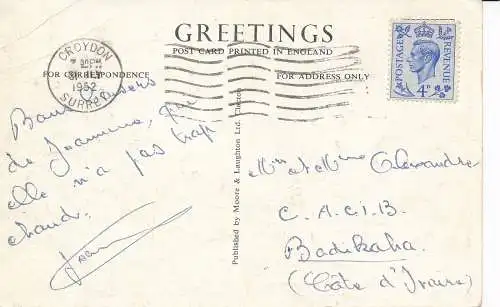 GREETINGS
POST CARD PRINTED IN ENGLAND
FOR CORRESPONDENCE
FOR ADDRESS ONLY
CROYDON
1952
SURREY
POSTAGE
REVENUE
4D
Bons baisers
de Jeannine, que
elle n'a pas trop
chaud.
Jean
Published by Moore & Laughton Ltd. Clacton
Mr et Mme Alexandre
C.A.C.I.B.
Badikaha
(Côte d'Ivoire)